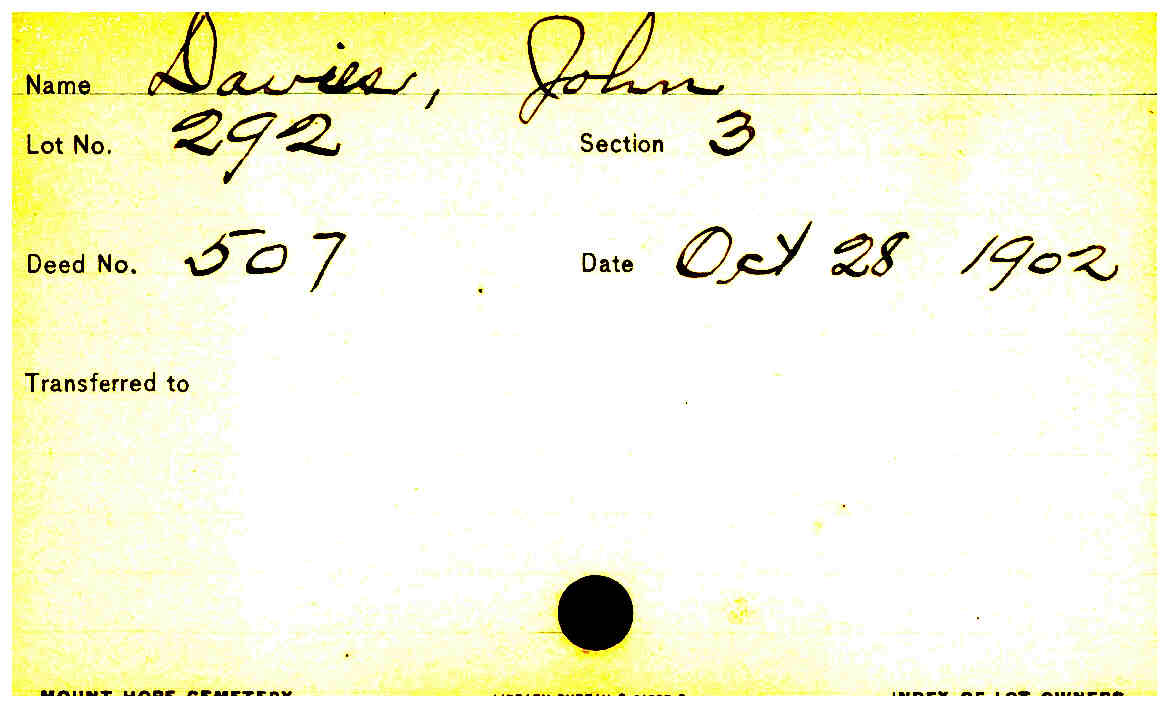 Name Davies, John
Lot No. 292 Section 3
Deed No. 507 Date Oct 28 1902
Transferred to
MOUNT HOPE CEMETERY INDEX OF LOT OWNERS